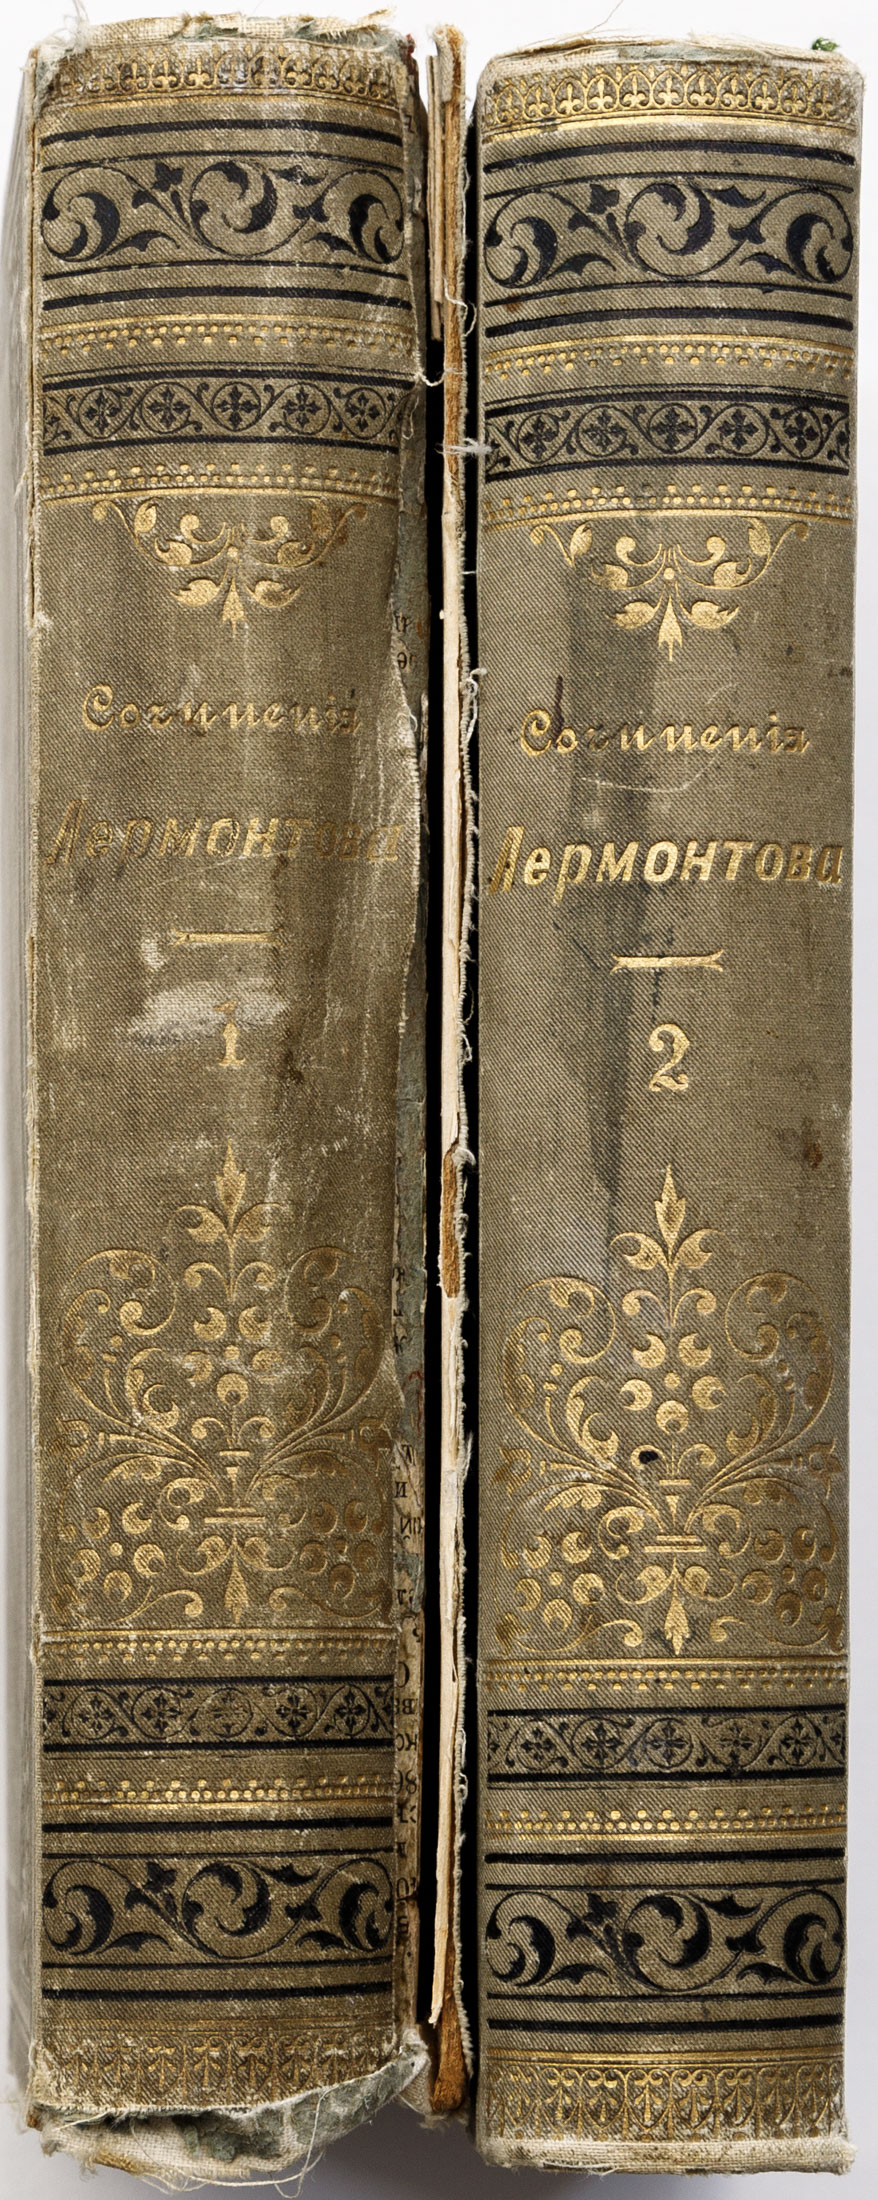 Сочиненія
Лермонтова
1
Сочиненія
Лермонтова
2